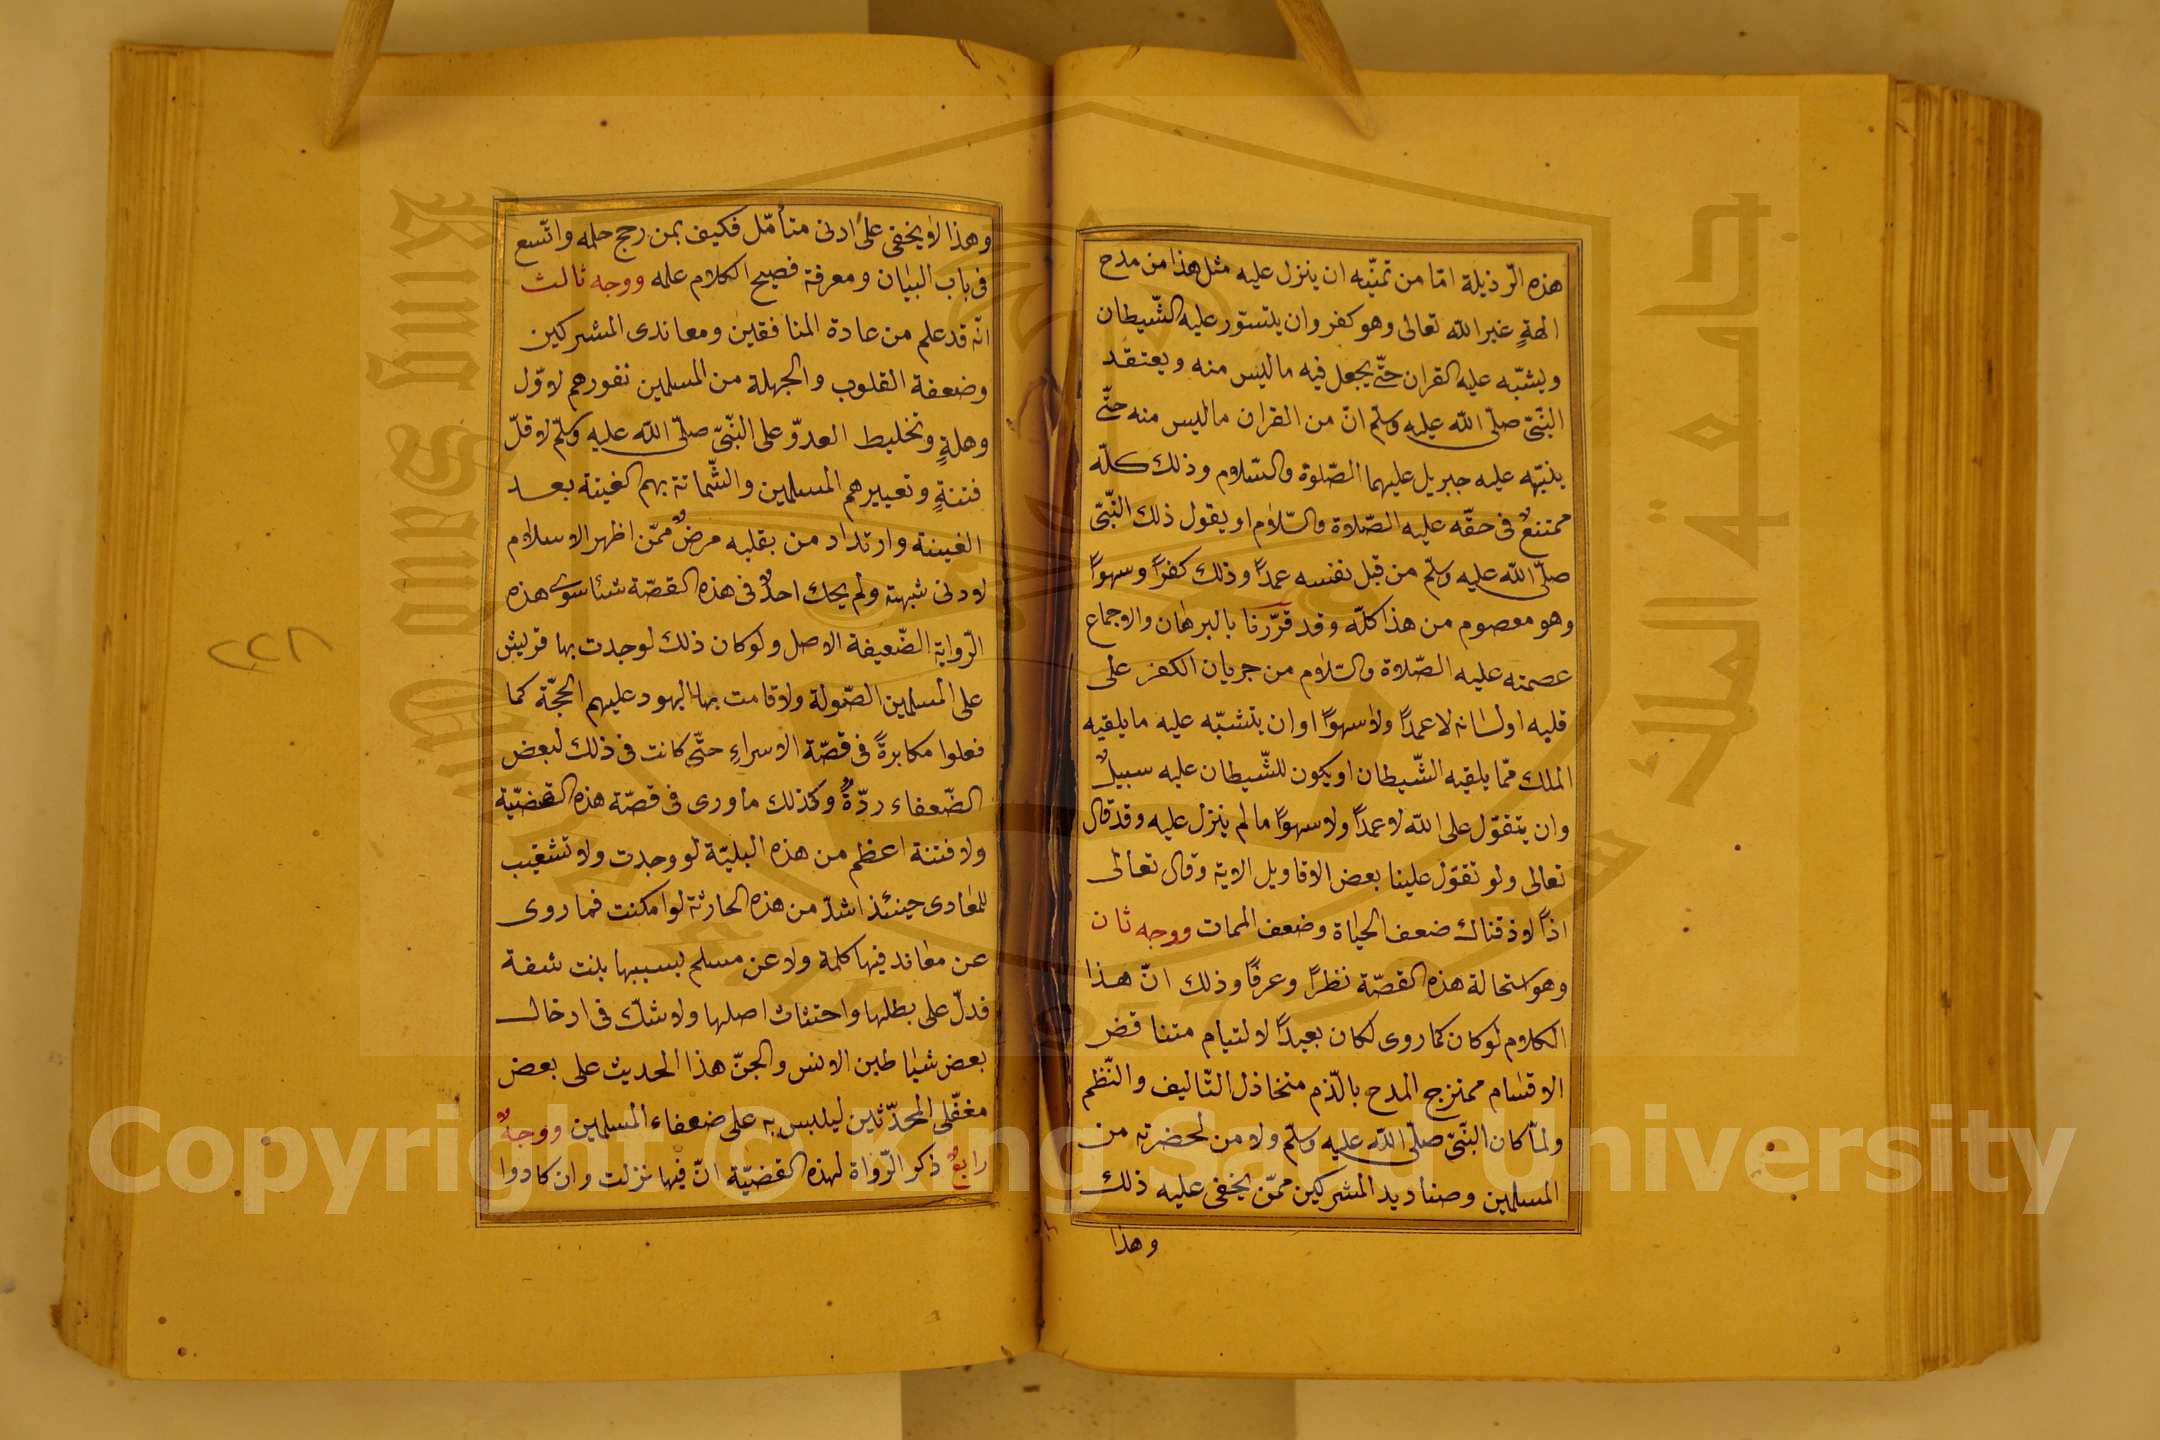 هذه الرّذيلة امّا من تمنّيه ان ينزل عليه مثل هذا من مدح
الهةٍ غير الله تعالى وهو كفر وان يتسوّر عليه الشّيطان
ويشبّه عليه القران حتّى يجعل فيه ما ليس منه ويعتقد
النّبىّ صلّى الله عليه وسلّم انّ من القران ما ليس منه حتّى
ينبّهه عليه جبريل عليهما الصّلوة والسّلام وذلك كلّه
ممتنعٌ فى حقّه عليه الصّلاة والسّلام او يقول ذلك النّبىّ
صلّى الله عليه وسلّم من قبل نفسه عمداً وذلك كفراً وسهواً
وهو معصوم من هذا كلّه وقد قرّرنا بالبرهان والاجماع
عصمته عليه الصّلاة والسّلام من جريان الكفر على
قلبه او لسانه لا عمداً ولا سهواً او ان يتشبّه عليه ما يلقيه
الملك ممّا يلقيه الشّيطان او يكون للشّيطان عليه سبيلٌ
وان يتقوّل على الله لا عمداً ولا سهواً ما لم ينزل عليه وقد قال
تعالى ولو تقوّل علينا بعض الاقاويل الاية وقال تعالى
اذاً لاذقناك ضعف الحياة وضعف الممات ووجه ثان
وهو استحالة هذه القصّة نظراً وعرفاً وذلك انّ هذا
الكلام لو كان كما روى لكان بعيداً لالتيام متناقض
الاقسام ممتزج المدح بالذّم متخاذل التّاليف والنّظم
ولمّا كان النّبىّ صلّى الله عليه وسلّم ولا من لحضرته من
المسلمين وصناديد المشركين ممّن يخفى عليه ذلك
وهذا
وهذا لا يخفى على ادنى متأمّل فكيف بمن رجح حلمه واتّسع
فى باب البيان ومعرفة فصيح الكلام علمه ووجه ثالث
انّه قد علم من عادة المنافقين ومعاندى المشركين
وضعفة القلوب والجهلة من المسلمين نفورهم لاوّل
وهلةٍ وتخليط العدوّ على النّبىّ صلّى الله عليه وسلّم لاقلّ
فتنةٍ وتعييرهم المسلمين والشّماتة بهم الفينة بعد
الفينة وارتداد من بقلبه مرضٌ ممّن اظهر الاسلام
لادنى شبهة ولم يحك احدٌ فى هذه القصّة شئا سوى هذه
الرّواية الضّعيفة الاصل ولو كان ذلك لوجدت بها قريش
على المسلمين الصّولة ولاقامت بها اليهود عليهم الحجّة كما
فعلوا مكابرةً فى قصّة الاسراءِ حتّى كانت فى ذلك لبعض
الضّعفاء ردّةٌ وكذلك ما ورى فى قصّة هذه القضيّة
ولا فتنة اعظم من هذه البليّة لو وجدت ولا تشغيب
للمعادى حينئذ اشدّ من هذه الحادثة لو امكنت فما روى
عن معاند فيها كلمة ولا عن مسلم بسببها بنت شفة
فدلّ على بطلها واجتثاث اصلها ولا شكّ فى ادخال
بعض شياطين الانس والجنّ هذا الحديث على بعض
مغفّلى المحدّثين ليلبس به على ضعفاء المسلمين ووجهٌ
رابعٌ ذكر الرّواة لهذه القضيّة انّ فيها نزلت وان كادوا
٢٢٨
جامعة الملك سعود
King Saud University
Copyright © King Saud University